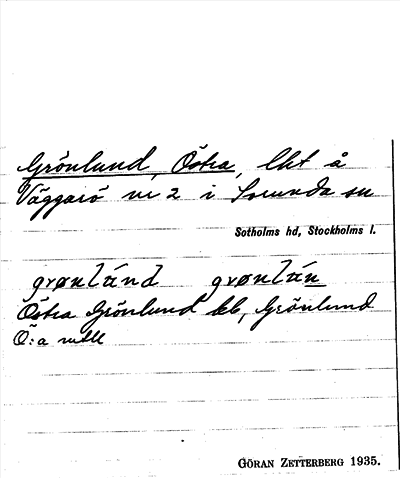 Grönlund, Östra, lht å
Väggarö nr 2 i Sorunda sn
Sotholms hd, Stockholms l.
grønlund grønlun
Östra Grönlund kb, Grönlund
Ö:a
GÖRAN ZETTERBERG 1935.